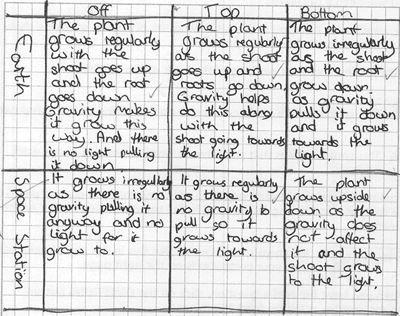 Off Top Bottom
Earth
The plant
grows regularly
with the
shoot goes up
and the root
goes down
gravity makes
it grow this
way. And there
is no light pulling
it down
The plant
grows regularly
as the shoot
goes up and
roots go down.
Gravity helps
do this along
with the
shoot going towards
the light.
The plant
grows irregularly
as the shoot
and the root
grow down.
as gravity
pulls it down
and it grows
towards the
light.
Space Station
It grows irregularly
as there is no
gravity plalling it
anyway and no
light for it
grow to.
It grows regularly
as there is
no gravity to
pull so it
grows towards
the light.
The plant
grows upside
down as the
gravity does
not affect
it and the
shoot grows
to the light.